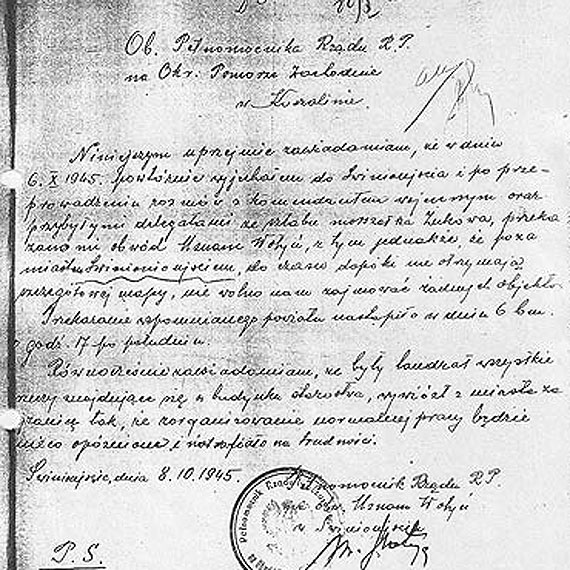 Ob. Pełnomocnika Rządu R.P.
na Okr. Pomorze Zachodnie
w Koszalinie.
Niniejszym uprzejmie zawiadamiam, że w dniu
6.X 1945. powtórnie wyjechałem do Świnoujścia i po prze-
prowadzeniu rozmów z komendantem wojennym oraz
przybyłymi delegatami ze sztabu marszałka Żukowa, przeka
zano mi obwód Uznam Wołyń, z tym jednakże, że poza
miastem Świnioujściem, do czasu dopóki nie otrzymają
szczegółowej mapy, nie wolno nam zajmować żadnych objektów
Przekazanie wspomnianego powiatu nastąpiło w dniu 6 bm.
godz. 17-po południu.
Równocześnie zawiadamiam, że były landrat wszystkie
znajdujące się w budynku starostwa, wywiózł z miasta za
granicę tak, że zorganizowanie normalnej pracy będzie
nieco opóźnione i natrafiało na trudności.
dnia 8.10.1945.
Pełnomocnik Rządu R.P.
na obw. Uznam Wołyń
w
P.S.